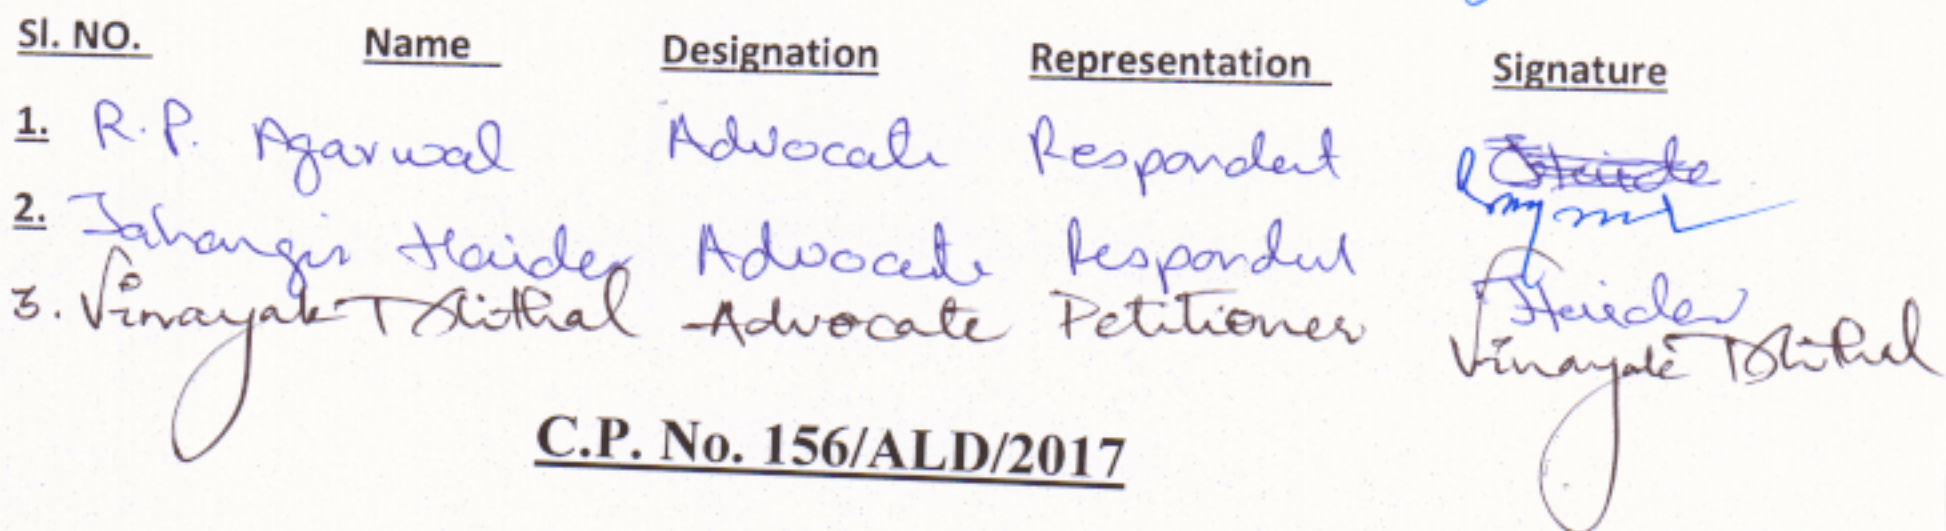 Sl. NO. Name Designation Representation Signature
1. R.P. Agarwal Advocate Respondent
2. Jahangir Haider Advocate Respondent Haider
3. Vinayak Mithal Advocate Petitioner Vinayak Mithal
C.P. No. 156/ALD/2017